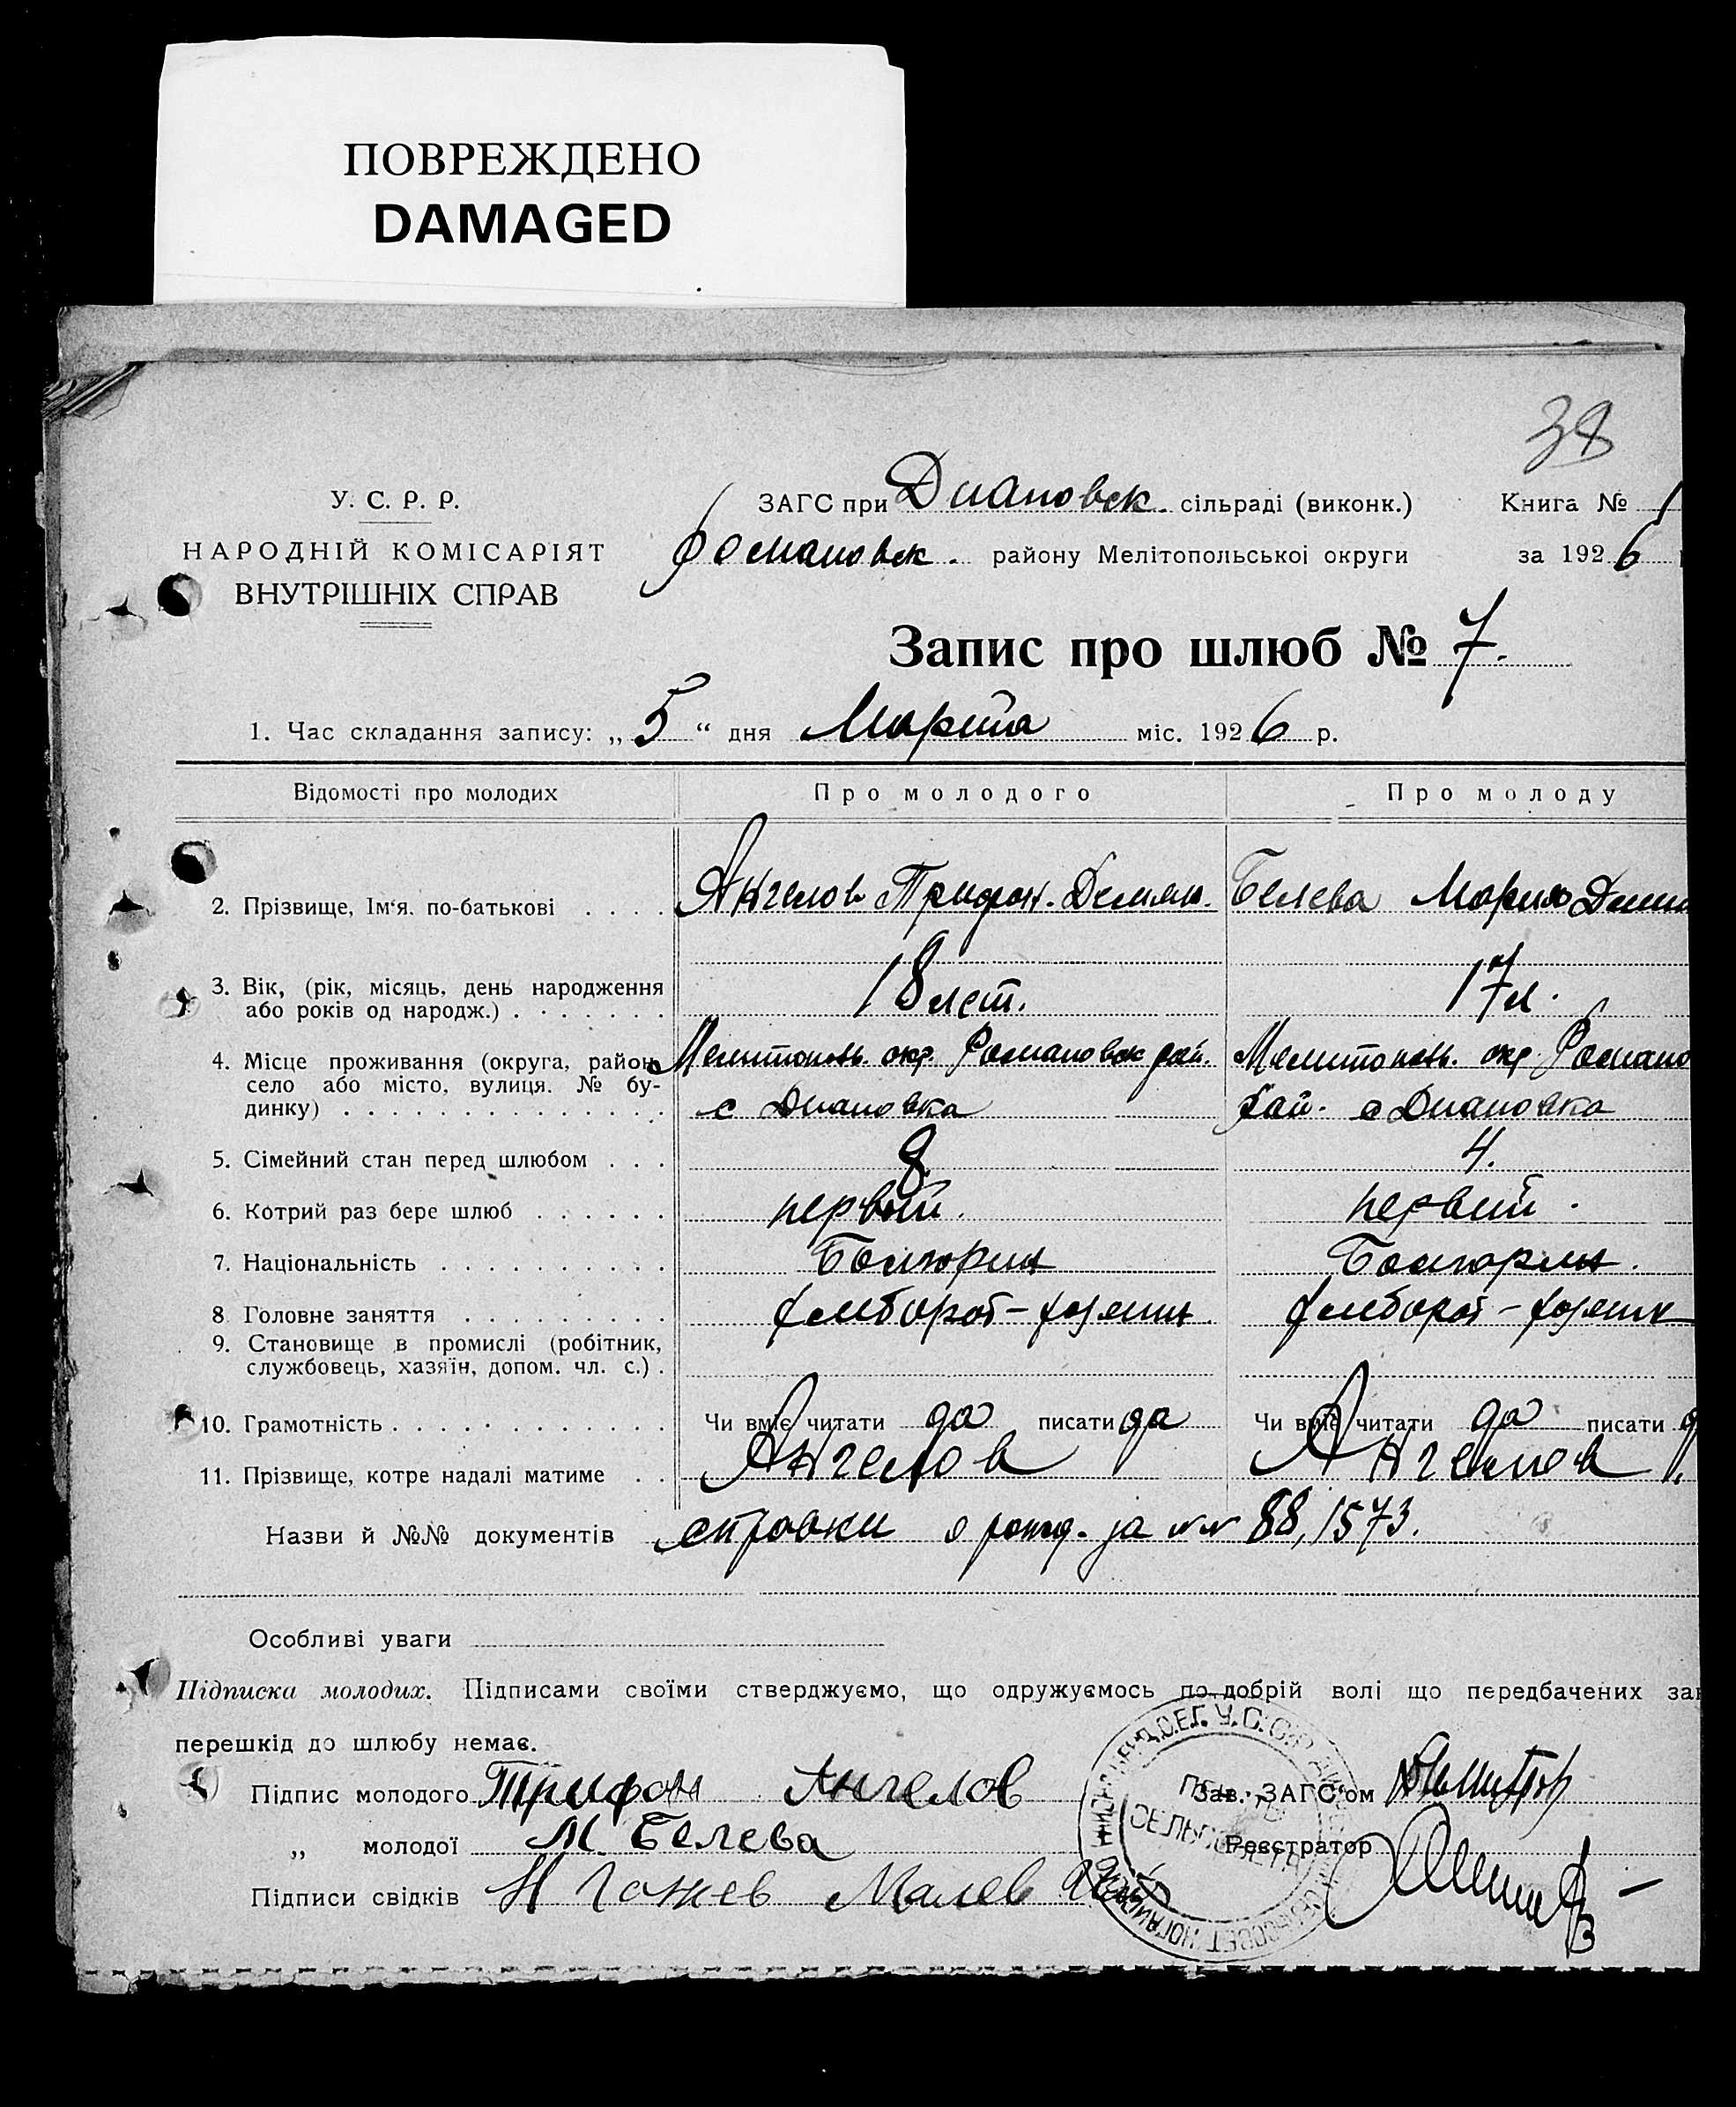 ПОВРЕЖДЕНО
DAMAGED
38
У. С. Р. Р.
НАРОДНІЙ КОМІСАРІЯТ
ВНУТРІШНІХ СПРАВ
ЗАГС при Диановск. сільраді (виконк.)
Романовск. району Мелітопольської округи
Книга № 1
за 1926
Запис про шлюб № 7.
1. Час складання запису: „ 5 “ дня Марта міс. 1926 р.
Відомості про молодих Про молодого Про молоду
2. Прізвище, Ім‘я. по-батькові . . . . Ангелов Трифон. Демян. Белева Мария
3. Вік, (рік, місяць, день народження
або років од народж.) . . . . . . . 18 лет. 17 л.
4. Місце проживання (округа, район, Мелитополь. окр. Романовск рай. Мелитополь. окр. Романо
село або місто, вулиця. № бу-
динку) . . . . . . . . . . . . . . с Диановка рай. с Диановка
5. Сімейний стан перед шлюбом . . . 8 4.
6. Котрий раз бере шлюб . . . . . . первый. первый.
7. Національність . . . . . . . . . . Болгарин Болгарин.
8 Головне заняття . . . . . . . . . хлебороб - хозяин. хлебороб - хозяин
9. Становище в промислі (робітник,
службовець, хазяїн, допом. чл. с.) .
10. Грамотність . . . . . . . . . . . . Чи вміє читати да писати да Чи вміє читати да писати
11. Прізвище, котре надалі матиме . . Ангелов Ангелов
Назви й №№ документів справки о рожд. за №№ 88, 1573.
Особливі уваги
Підписка молодих. Підписами своїми стверджуємо, що одружуємось по добрій волі що передбачених зак
перешкід до шлюбу немає.
Підпис молодого Трифон Ангелов Зав. ЗАГС‘ом
„ молодої М. Белева Реєстратор
Підписи свідків Малев